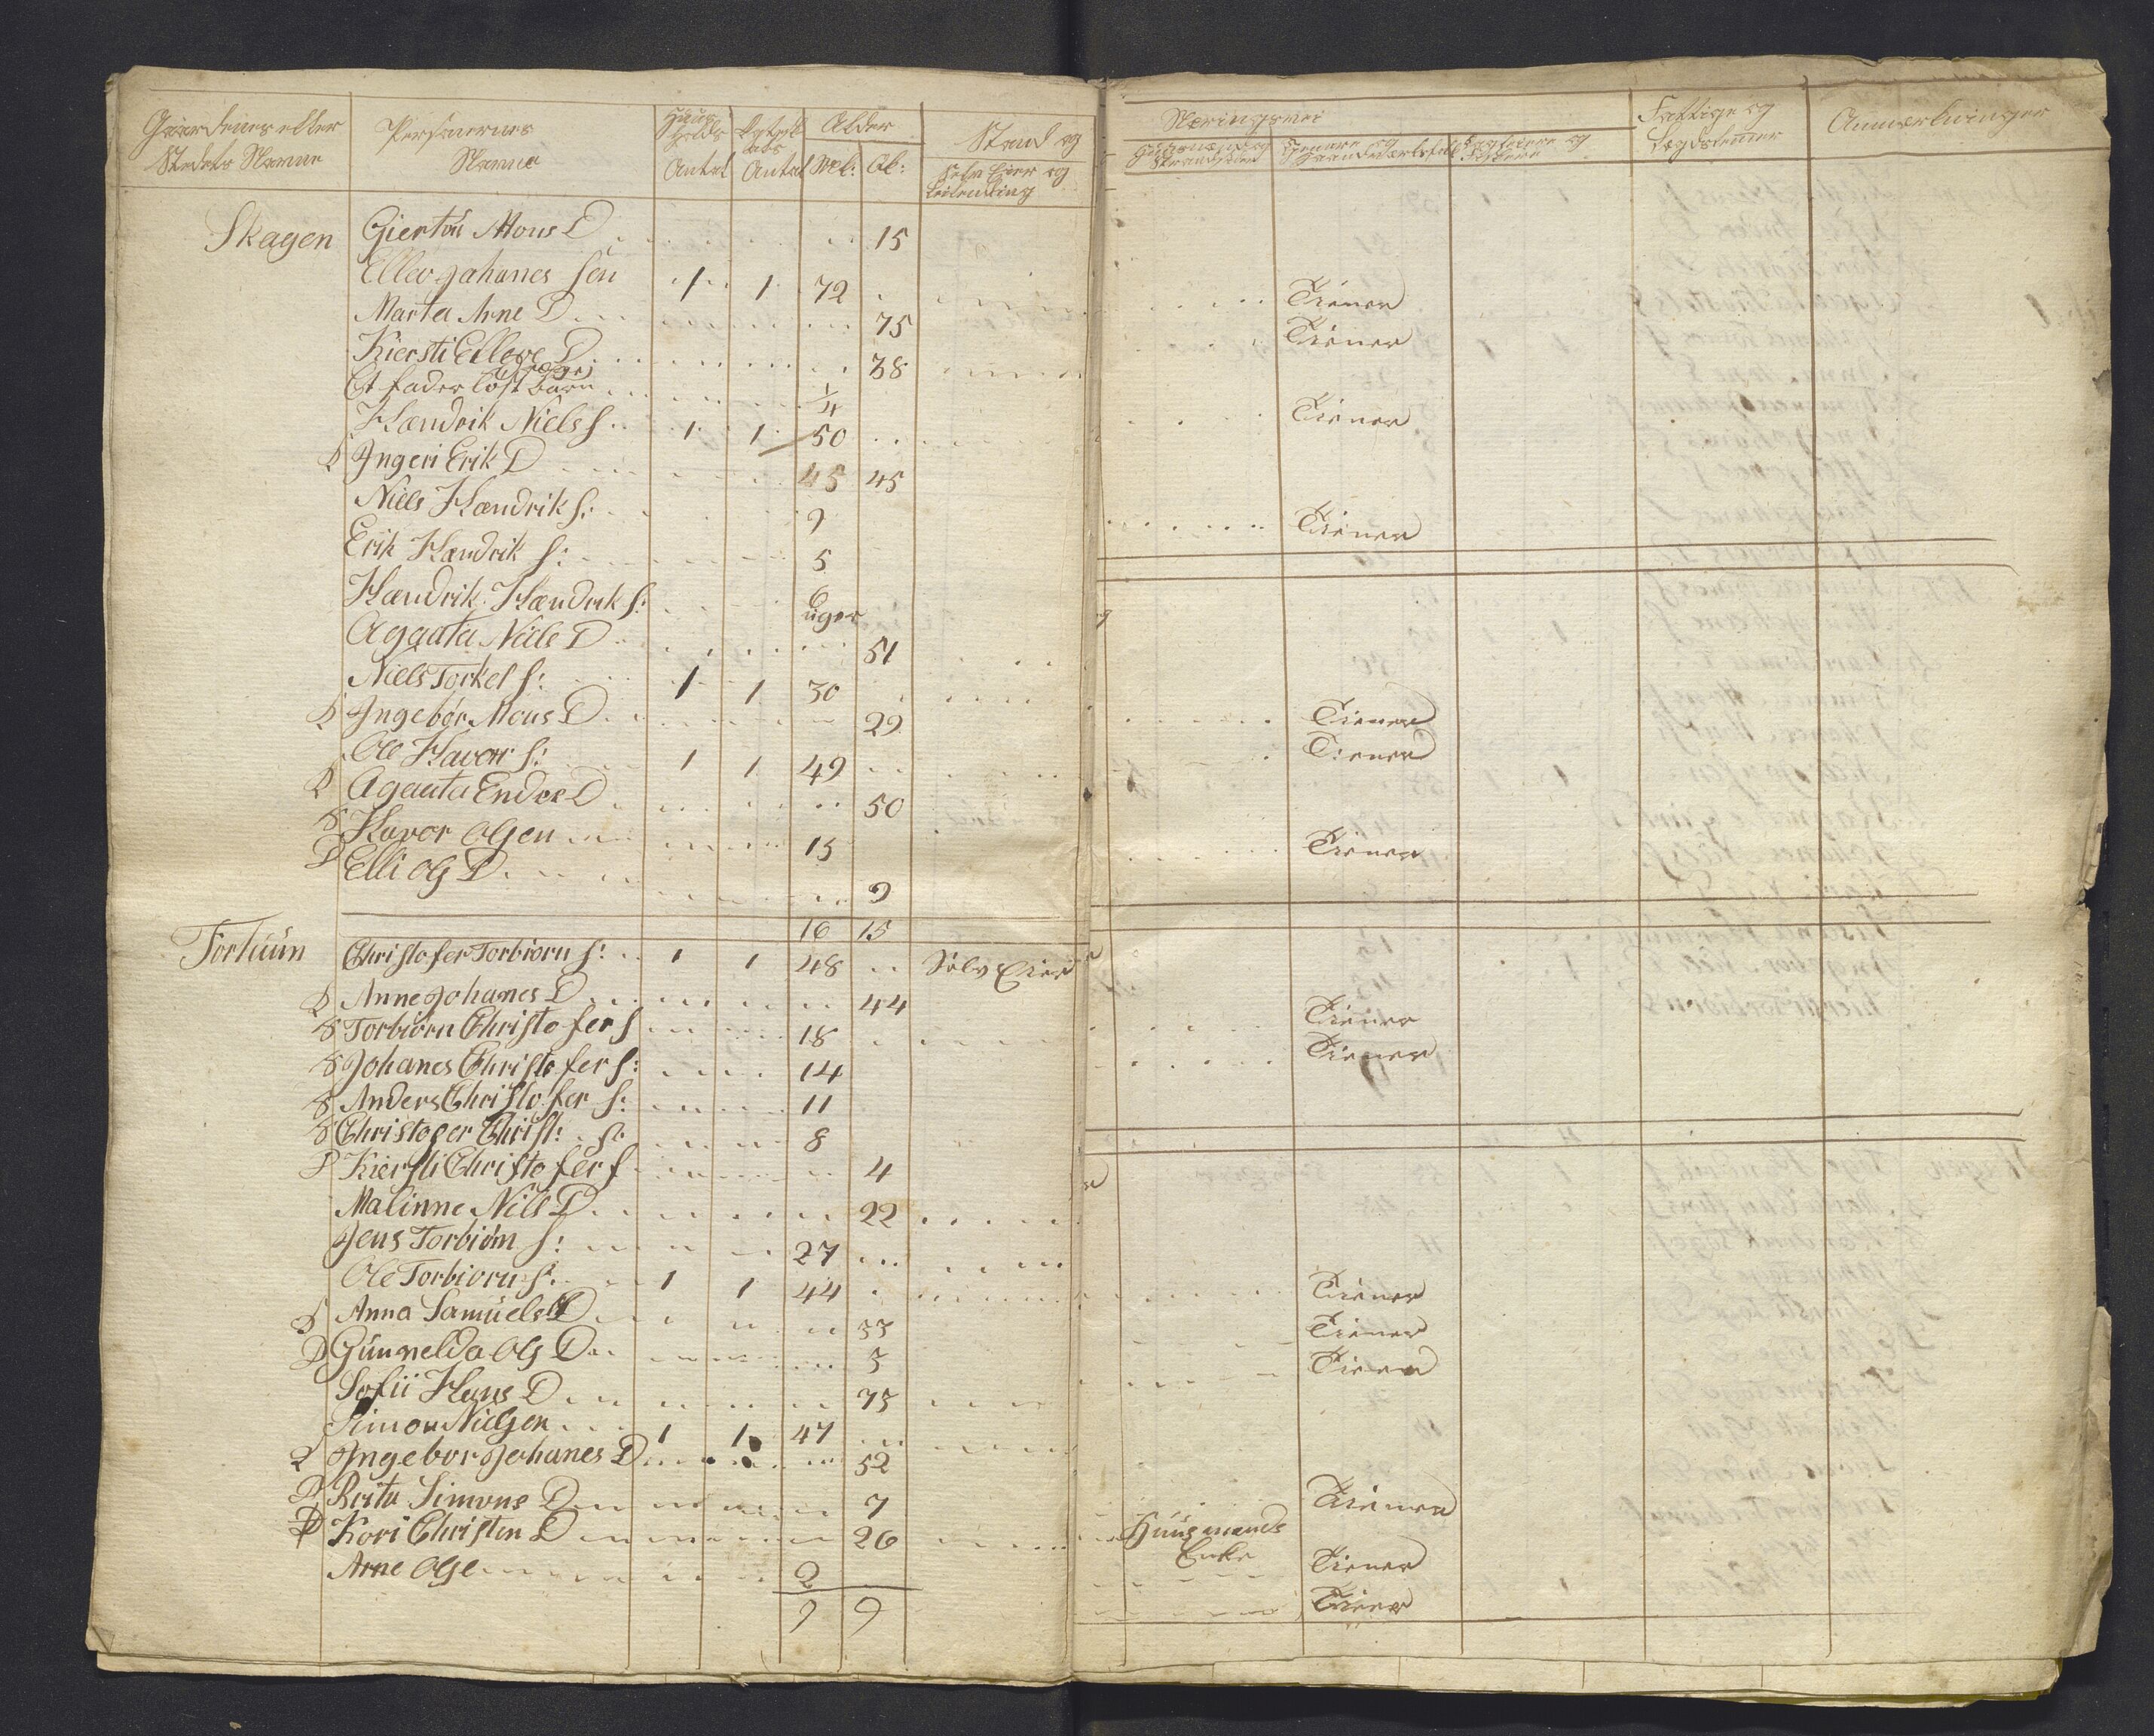 Gaardenes eller
Stedets Nanne
Personernes
Nanne
Huus
holds
Antal
Antal
Alder
Mk: Qk:
Stand og
Selv Eier og
Leilending
Næringsvei
Huusmænd og
Strandsidere
Haandværksfolk
Fattige og
Legdslemer
Anmerkninger
Skagen Giertru Mons D 15
Ellev Johanes Sen 1 1 72
Marta Arne D 75
Kiersti Elleve D 38
Et fader løst barn 1/4
Hændrik Niels S 1 1 50
Q Ingeri Erik D 45 45
Niels Hændrik S: 9
Erik Hændrik S: 5
Hændrik Hændrik S: 6 uger
Agaata Niels D 51
Niels Torkel S: 1 1 30
Q Ingebør Mons D 29
Ole Havor S: 1 1 49
Q Agaata Endre D 50
S Havor Olsen 15
D Elli Ols D 9
16 15
Tiener
Tiener
Tiener
Tiener
Tiener
Tiener
Tiener
Christofer Torbiorn S: 1 1 48 Selv Eier
Q Anne Johanes D 44
S Torbiørn Christofer S 18
S Johanes Christofer S: 14
S Anders Christofer S: 11
S Christofer Christ: S: 8
D Kiersti Christofer S 4
Malinne Nils D 22
Jens Torbiørn S: 27
Ole Torbiorn S: 1 1 44
Anna Samuels D 33
D Gunnelda Ols D 3
Sofii Hans D 73
Simon Nielsen 1 1 47
Q Ingebor Johanes D 52
D Brita Simons D 7
D Kari Christen D 26
Arne Olse 2
9 9
Tiener
Tiener
Tiener
Tiener
Tiener
Tiener
Huusmands
Enke
Tiener
Tiener